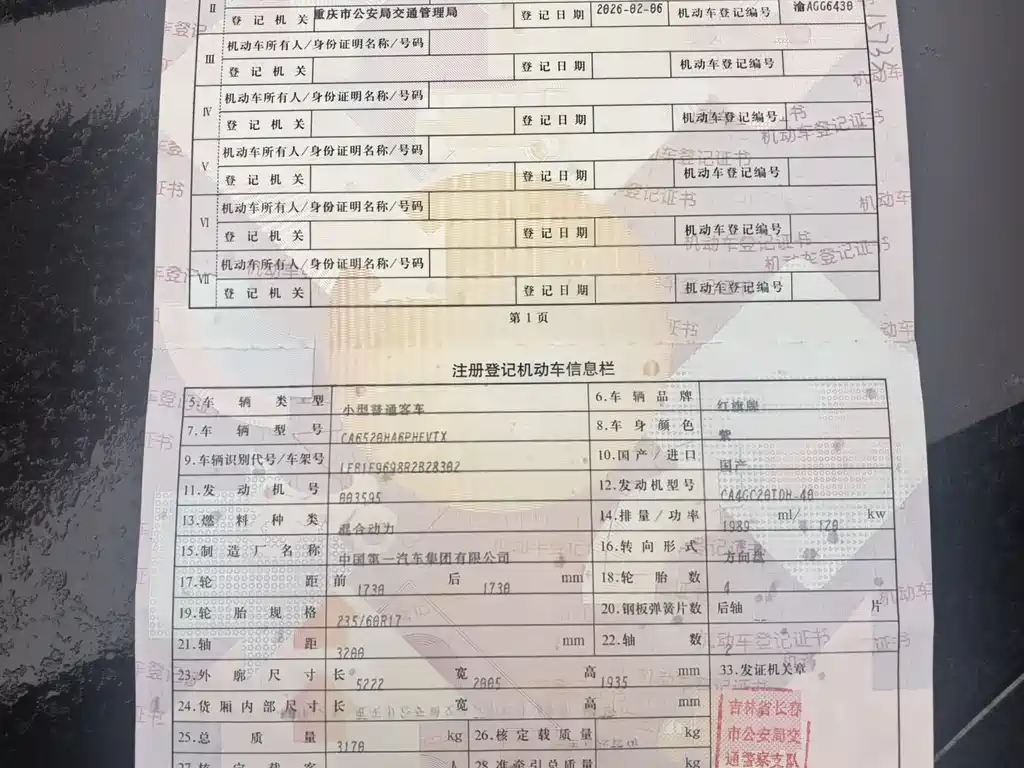 II
登记机关 重庆市公安局交通管理局 登记日期 2026-02-06 机动车登记编号 渝AGG6430
III 机动车所有人/身份证明名称/号码
登记机关 登记日期 机动车登记编号
IV 机动车所有人/身份证明名称/号码
登记机关 登记日期 机动车登记编号
V 机动车所有人/身份证明名称/号码
登记机关 登记日期 机动车登记编号
VI 机动车所有人/身份证明名称/号码
登记机关 登记日期 机动车登记编号
VII 机动车所有人/身份证明名称/号码
登记机关 登记日期 机动车登记编号
第1页
注册登记机动车信息栏
5.车辆类型 小型普通客车 6.车辆品牌 红旗牌
7.车辆型号 CA6520HA6PHEVTX 8.车身颜色 紫
9.车辆识别代号/车架号 10.国产/进口 国产
11.发动机号 003595 12.发动机型号 CA4GC20TDH-40
13.燃料种类 混合动力 14.排量/功率 1989 ml/ 120 kw
15.制造厂名称 中国第一汽车集团有限公司 16.转向形式 方向盘
17.轮距 前 1730 后 1730 mm 18.轮胎数 4
19.轮胎规格 235/60R17 20.钢板弹簧片数 后轴 -- 片
21.轴距 3200 mm 22.轴数 2
23.外廓尺寸 长 5222 宽 2005 高 1935 mm 33.发证机关章
24.货厢内部尺寸 长 宽 高 mm
吉林省长春
市公安局交
通警察支队
25.总质量 3170 kg 26.核定载质量 kg
27.核定载客 人 28.准牵引总质量 kg